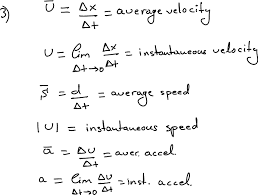 3) Ū = Δx/Δt = average velocity
U = lim Δt→0 Δx/Δt = instantaneous velocity
s̄ = d/Δt = average speed
|U| = instantaneous speed
ā = ΔU/Δt = aver. accel
a = lim Δt→0 ΔU/Δt = inst. accel